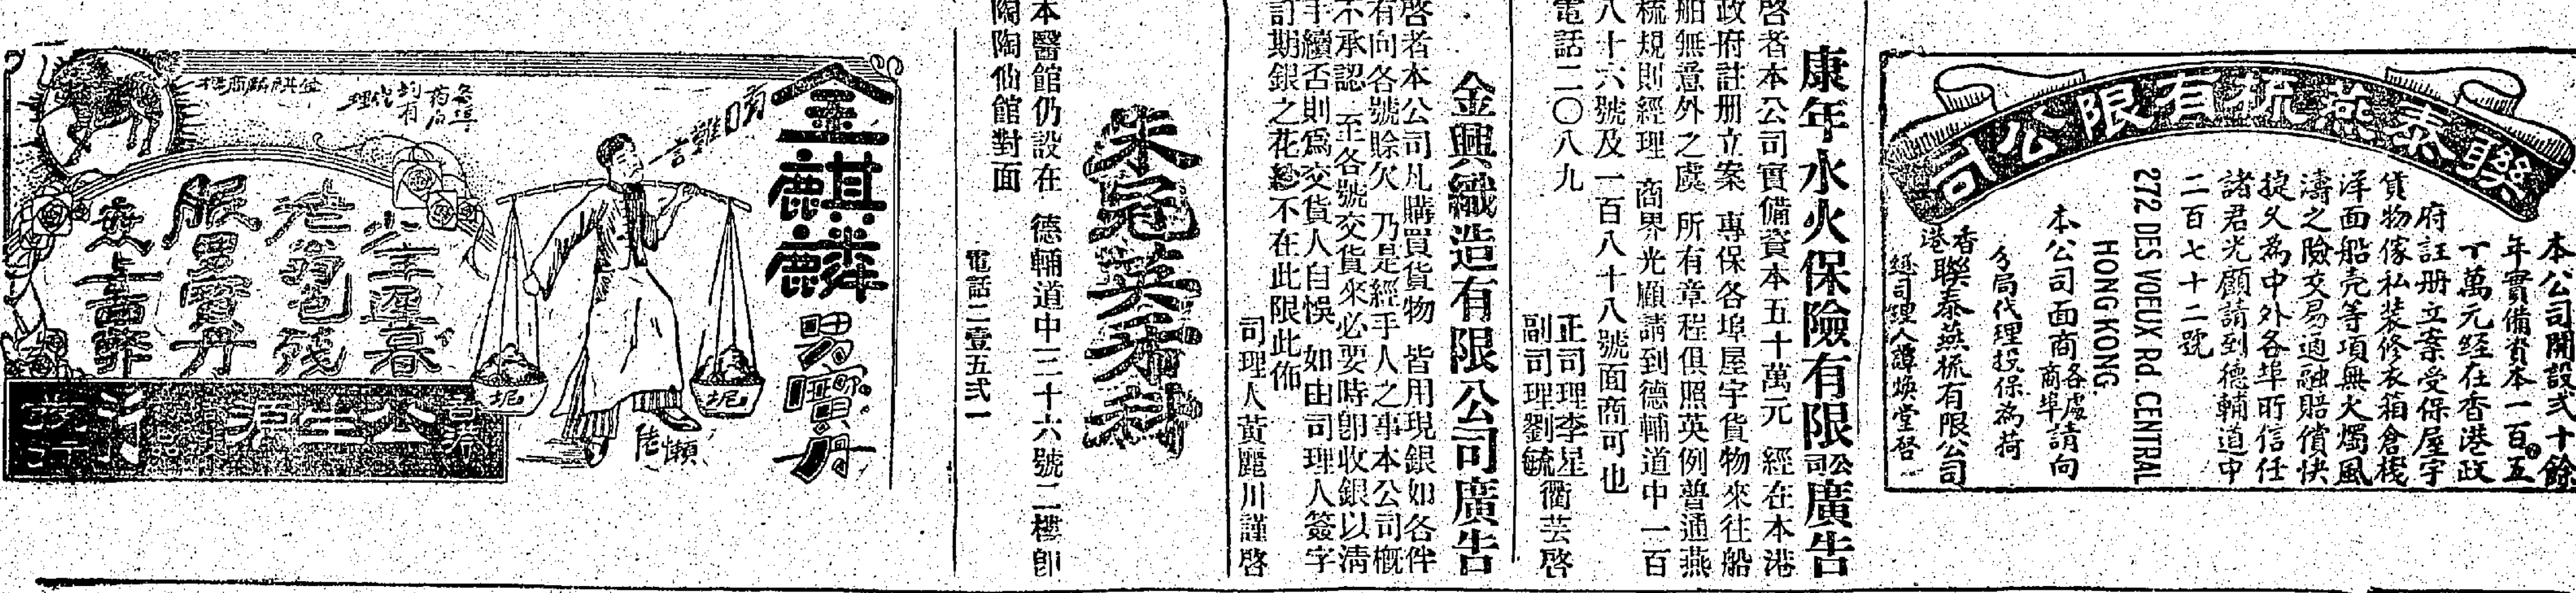 聯泰燕梳有限公司
本公司開設弍十餘
年實備資本一百五
十萬元經在香港政
府註册立案受保屋宇
貨物傢私裝修衣箱倉棧
洋面船壳等項無火燭風
濤之險交易適融賠償快
捷久為中外各埠所信任
諸君光顧請到德輔道中
二百七十二號
272 DES VOEUX Rd. CENTRAL
HONG KONG.
本公司面商各處商埠請向
分局代理投保為荷
香港聯泰燕梳有限公司
總司理人譚煥堂啓
康年水火保險有限公司廣告
啓者本公司實備資本五十萬元 經在本港
政府註册立案 專保各埠屋宇貨物來往船
舶無意外之虞 所有章程俱照英例普通燕
梳規則經理 商界光顧請到德輔道中一百
八十六號及一百八十八號面商可也
電話二〇八九
正司理李星衢
副司理劉毓芸啓
金興織造有限公司廣告
啓者本公司凡購買貨物 皆用現銀如各伴
有向各號賒欠 乃是經手人之事本公司概
不承認 至各號交貨來必要時卽收銀以清
手續否則爲交貨人自悞 如由司理人簽字
訂期銀之花紗不在此限此佈
司理人黃麗川謹啓
本醫館仍設在 德輔道中三十六號二樓卽
陶陶仙館對面
電話二壹五弍一
金麒麟
胃寶丹
啞口難言
各埠藥房均有代理
金麒麟商標
坭
坭